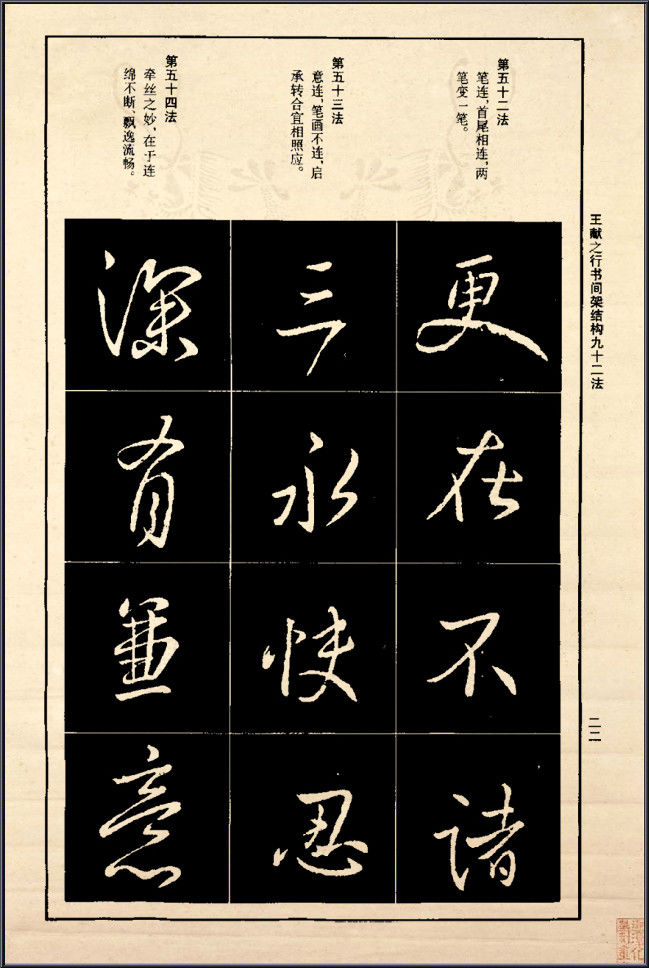 王献之行书间架结构九十二法
第五十二法
笔连，首尾相连，两
笔变一笔。
更
在
不
诸
第五十三法
意连，笔画不连，启
承转合宜相照应。
三
永
快
忍
第五十四法
牵丝之妙，在于连
绵不断、飘逸流畅。
深
有
兼
意
二二